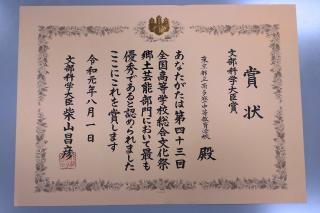 賞状
文部科学大臣賞
東京都立南多摩中等教育学校
殿
あなたがたは第四十三回
全国高等学校総合文化祭
郷土芸能部門において最も
優秀であると認められました
ここにこれを賞します
令和元年八月一日
文部科学大臣 柴山昌彦